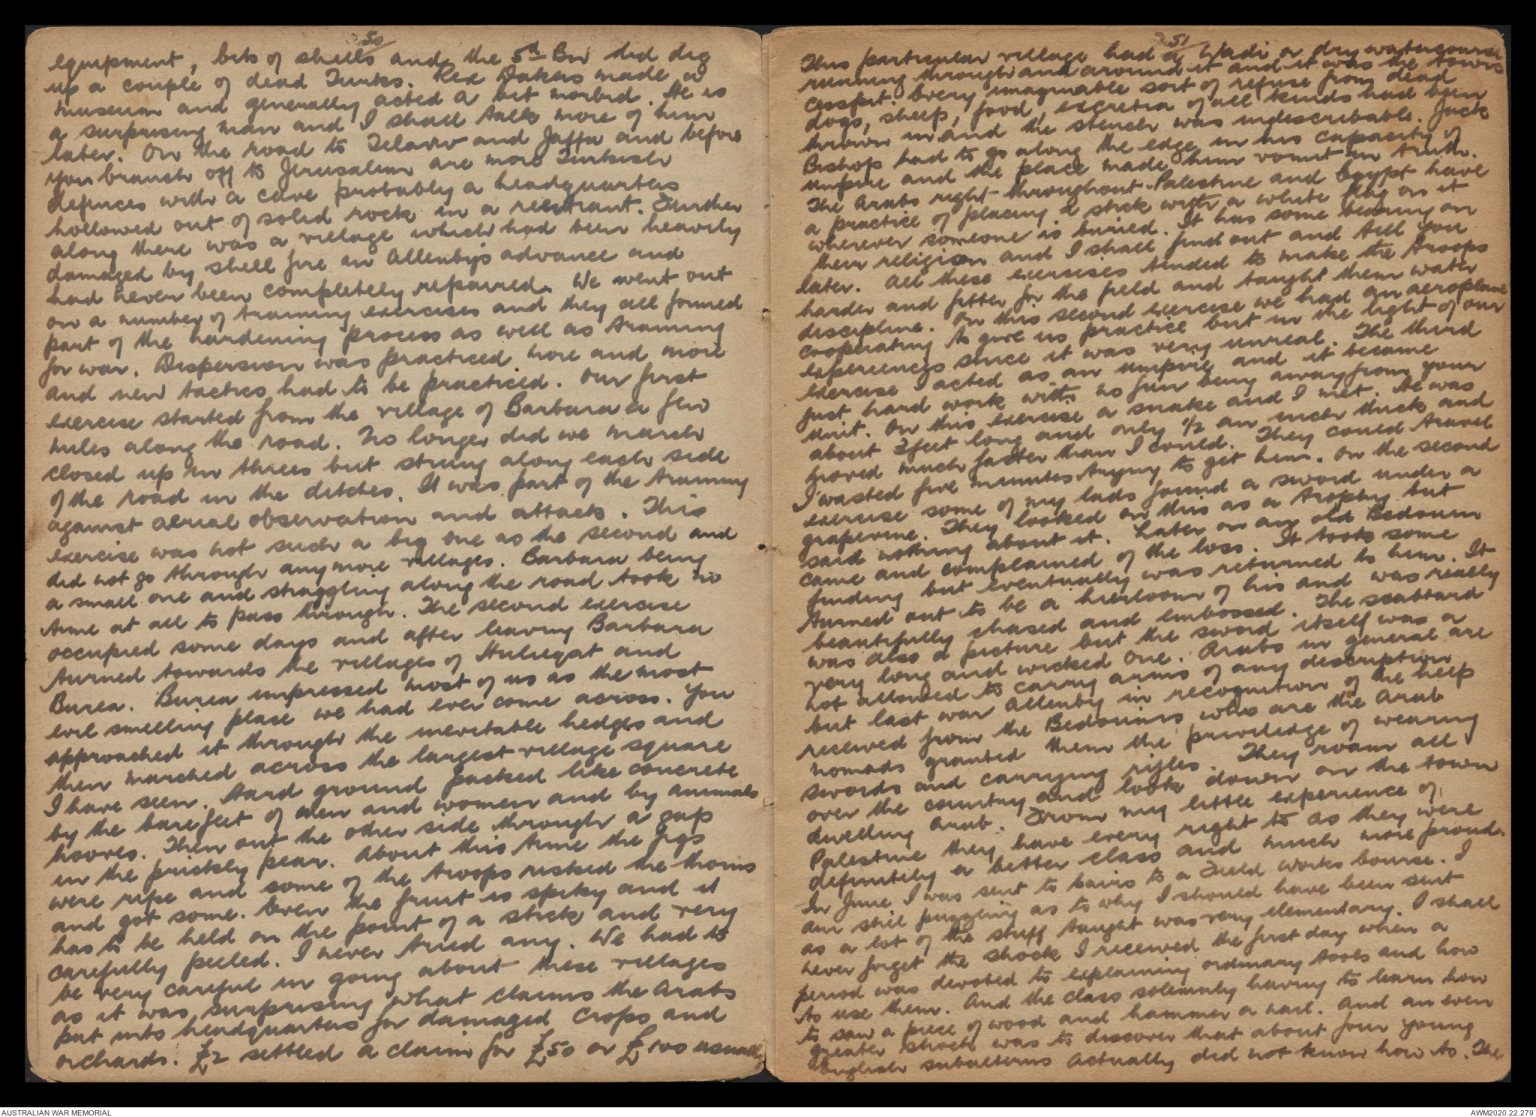 50
equipment, bits of shells and the 5th Bn did dig
up a couple of dead Turks. Rex Oakes made a
museum and generally acted a bit morbid. He is
a surprising man and I shall talk more of him
later. On the road to Telaviv and Jaffa and before
you branch off to Jerusalem are more Turkish
defences with a cave probably a headquarters
hollowed out of solid rock in a reentrant. Further
along there was a village which had been heavily
damaged by shell fire in Allenby's advance and
had never been completely repaired. We went out
on a number of training exercises and they all formed
part of the hardening process as well as training
for war. Dispersion was practiced more and more
and new tactics had to be practiced. Our first
exercise started from the village of Barbara a few
miles along the road. No longer did we march
closed up in threes but strung along each side
of the road in the ditches. It was part of the training
against aerial observation and attack. This
exercise was not such a big one as the second and
did not go through any more villages. Barbara being
a small one and straggling along the road took no
time at all to pass through. The second exercise
occupied some days and after leaving Barbara
turned towards the villages of Huliqat and
Burea. Burea impressed most of us as the most
evil smelling place we had ever come across. You
approached it through the inevitable hedges and
then marched across the largest village square
I have seen. Hard ground packed like concrete
by the bare feet of men and women and by animals
hooves. Then out the other side through a gap
in the prickly pear. About this time the figs
were ripe and some of the troops risked the thorns
and got some. Even the fruit is spiky and it
has to be held on the point of a stick and very
carefully peeled. I never tried any. We had to
be very careful in going about these villages
as it was surprising what claims the Arabs
put into headquarters for damaged crops and
orchards. £2 settled a claim for £50 or £100 usually
51
This particular village had a Wadi or dry watercourse
running through and around it and it was the towns
cesspit. Every imaginable sort of refuse from dead
dogs, sheep, food, excretia of all kinds had been
thrown in and the stench was indescribable. Jack
Bishop had to go along the edge in his capacity of
umpire and the place made him vomit in truth.
The Arabs right throughout Palestine and Egypt have
a practice of placing a stick with a white flag on it
wherever someone is buried. It has some bearing on
their religion and I shall find out and tell you
later. All these exercises tended to make the troops
harder and fitter for the field and taught them water
discipline. On this second exercise we had an aeroplane
cooperating to give us practice but in the light of our
experiences since it was very unreal. The third
exercise I acted as an umpire and it became
just hard work with no fun being away from your
unit. On this exercise a snake and I met. He was
about 2 feet long and only 1/2 an inch thick and
moved much faster than I could. They could travel
I wasted five minutes trying to get him. On the second
exercise some of my lads found a sword under a
grapevine. They looked on this as a trophy but
said nothing about it. Later on an old Bedouin
came and complained of the loss. It took some
finding but eventually was returned to him. It
turned out to be a heirloom of his and was really
beautifully chased and embossed. The scabbard
was also a picture but the sword itself was a
very long and wicked one. Arabs in general are
not allowed to carry arms of any description
but last war Allenby in recognition of the help
received from the Bedouins who are the Arab
nomads granted them the priviledge of wearing
swords and carrying rifles. They roam all
over the country and look down on the town
dwelling Arab. From my little experience of
Palestine they have every right to as they were
definitely a better class and much more proud.
In June I was sent to Cairo to a Field works Course. I
am still puzzling as to why I should have been sent
as a lot of the stuff taught was very elementary. I shall
never forget the shock I received the first day when a
period was devoted to explaining ordinary tools and how
to use them. And the class solemnly having to learn how
to saw a piece of wood and hammer a nail. And an even
greater shock was to discover that about four young
English subalterns actually did not know how to. The
AUSTRALIAN WAR MEMORIAL
AWM2020.22.279